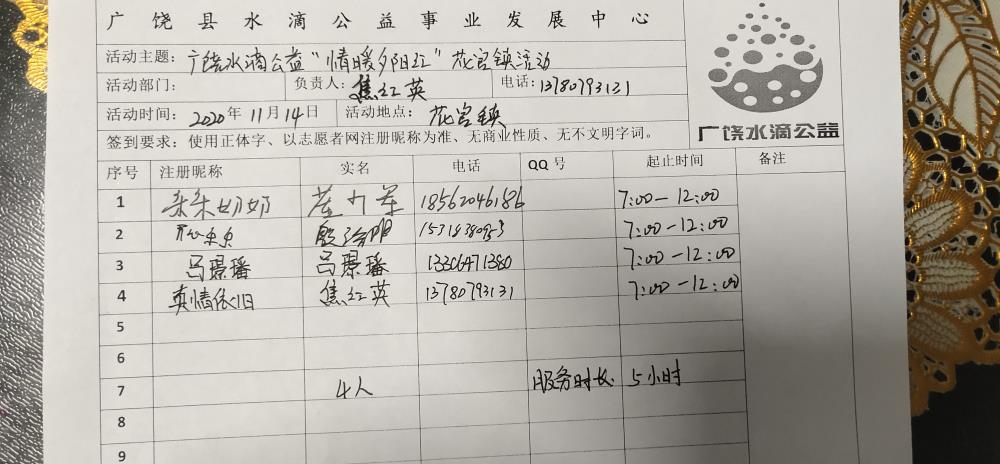 广饶县水滴公益事业发展中心
活动主题：广饶水滴公益“情暖夕阳红”花官镇活动
活动部门： 负责人：焦红英 电话：13780793131
活动时间：2020年11月14日 活动地点：花官镇
签到要求：使用正体字、以志愿者网注册昵称为准、无商业性质、无不文明字词。
广饶水滴公益
序号 注册昵称 实名 电话 QQ号 起止时间 备注
1 朵朵奶奶 18562046186 7:00-12:00
2 7:00-12:00
3 吕璟璠 吕璟璠 13306471380 7:00-12:00
4 真情依旧 焦红英 13780793131 7:00-12:00
5
6
7 4人 服务时长 5小时
8
9